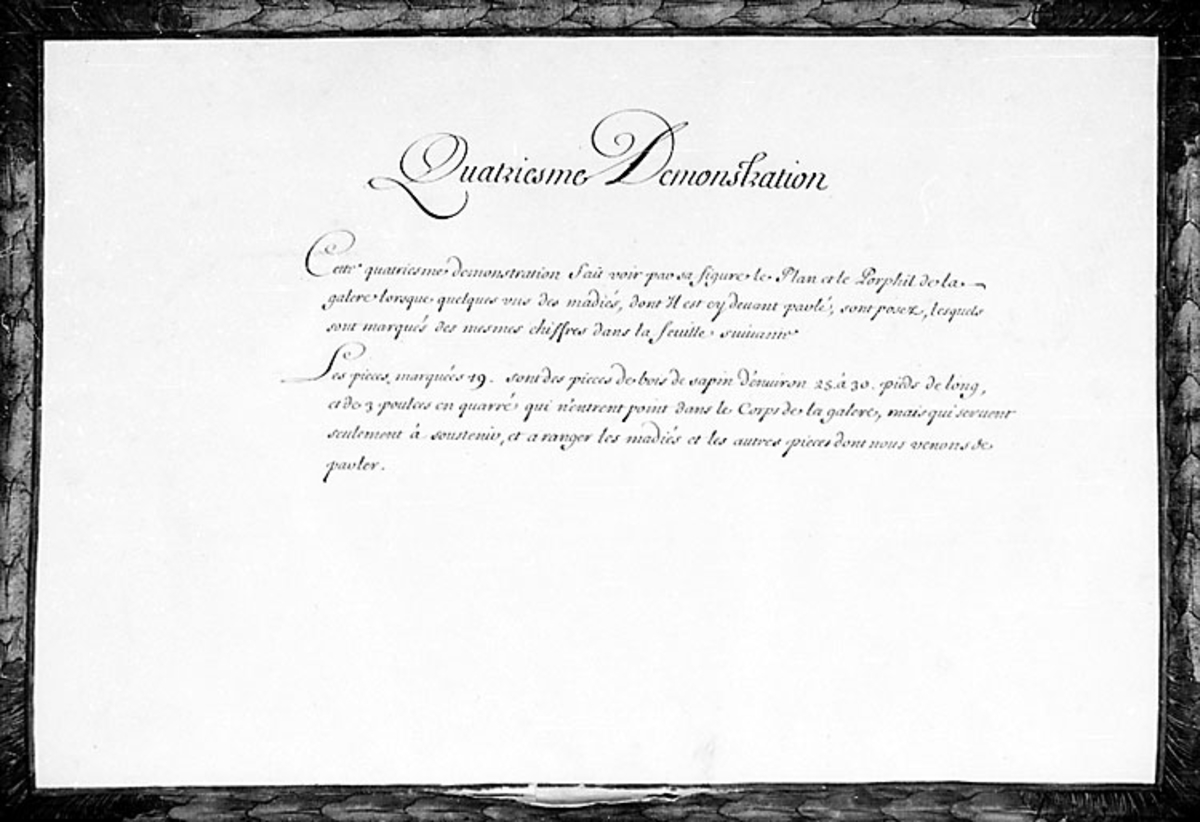 Quatriesme Demonstration
Cette quatriesme demonstration fait voir par sa figure le Plan et le Porphil de la
galere lorsque quelques uns des madiés, dont Il est cy devant parlé, sont posez, lesquels
sont marqués des mesmes chiffres dans la feuille suivante
Les pieces marquées 19. sont des pieces de bois de sapin d'environ 25 à 30. pieds de long,
et de 3 poulces en quarré qui n'entrent point dans le Corps de la galere, mais qui servent
seulement à soustenir, et a ranger les madiés et les autres pieces dont nous venons de
parler.